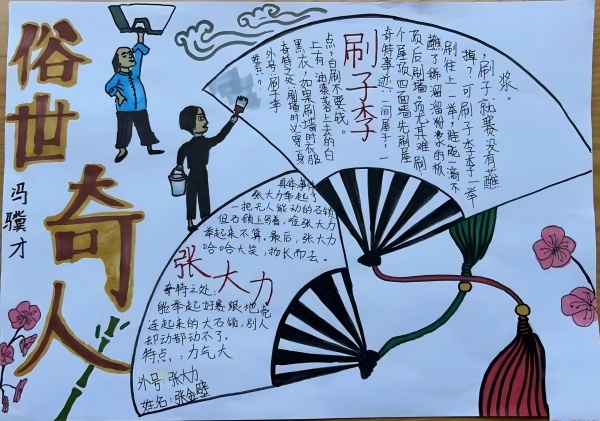 俗世奇人
冯骥才
刷子李
外号:刷子李
奇特之处:刷墙时必穿一身
黑衣,如果刷墙时衣服
上有油浆落上去的白
点,白刷不要钱。
奇特事迹:一间屋子,一
个屋顶四面墙,先刷屋
顶后刷墙。顶尤其难刷,
蘸了稀溜溜粉浆的板
刷往上一举,谁能一滴不
掉?可刷子李李一举
,刷子就赛没有蘸
浆。
具体事件
张大力举起了
一把无人能动的石锁
但石锁上写着,唯张大力
举起来不算。最后,张大力
哈哈大笑,扬长而去。
张大力
奇特之处:
能举起好赛跟地壳
连起来的大石锁,别人
却动都动不了。
特点:力气大
外号:张大力
姓名:张金璧